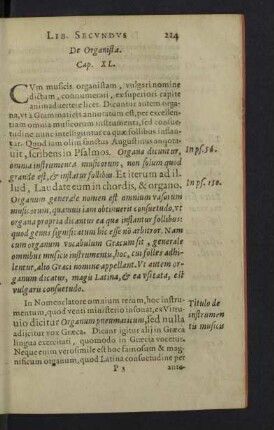 LIB. SECVNDVS 224
De Organista.
Cap. XL.
CVm musicis organistam, vulgari nomine
dictam, connumerari, ex superiori capite
animaduertere licet. Dicuntur autem orga-
na, vt à Grammaticis annotatum est, per excellen-
tiam omnia musicorum instrumenta, sed consue-
tudine nunc intelliguntur ea quæ follibus inflan-
tur. Quod iam olim sanctus Augustinus annota-
uit, scribens in Psalmos. Organa dicuntur,
omnia instrumenta musicorum, non solum quod
grande est, & inflatur follibus. Et iterum ad il-
lud, Laudate eum in chordis, & organo.
Organum generale nomen est omnium vasorum
musicorum, quamuis iam obtinuerit consuetudo, vt
organa propria dicantur ea quæ inflantur follibus:
quod genus significatum hic esse nō arbitror. Nam
cum organum vocabulum Græcum sit, generale
omnibus musicis instrumentis, hoc, cui folles adhi-
bentur, alio Græci nomine appellant. Vt autem or-
ganum dicatur, magis Latina, & ea vsitata, est
vulgaris consuetudo.
In ps. 56.
In ps. 150.
In Nomenclatore omnium rerum, hoc instru-
mentum, quod venti ministerio insonat, ex Vi-
truuio dicitur Organum pneumaticum, sed nulla
adiicitur vox Græca. Dicunt igitur alij in Græca
lingua exercitati, quomodo in Græcia vocetur.
Neque enim verosimile est hoc famosum & mag-
nificum organum, quod Latina consuetudine per
Titulo de
instrumen
tũ musicũ
P 3 auto-